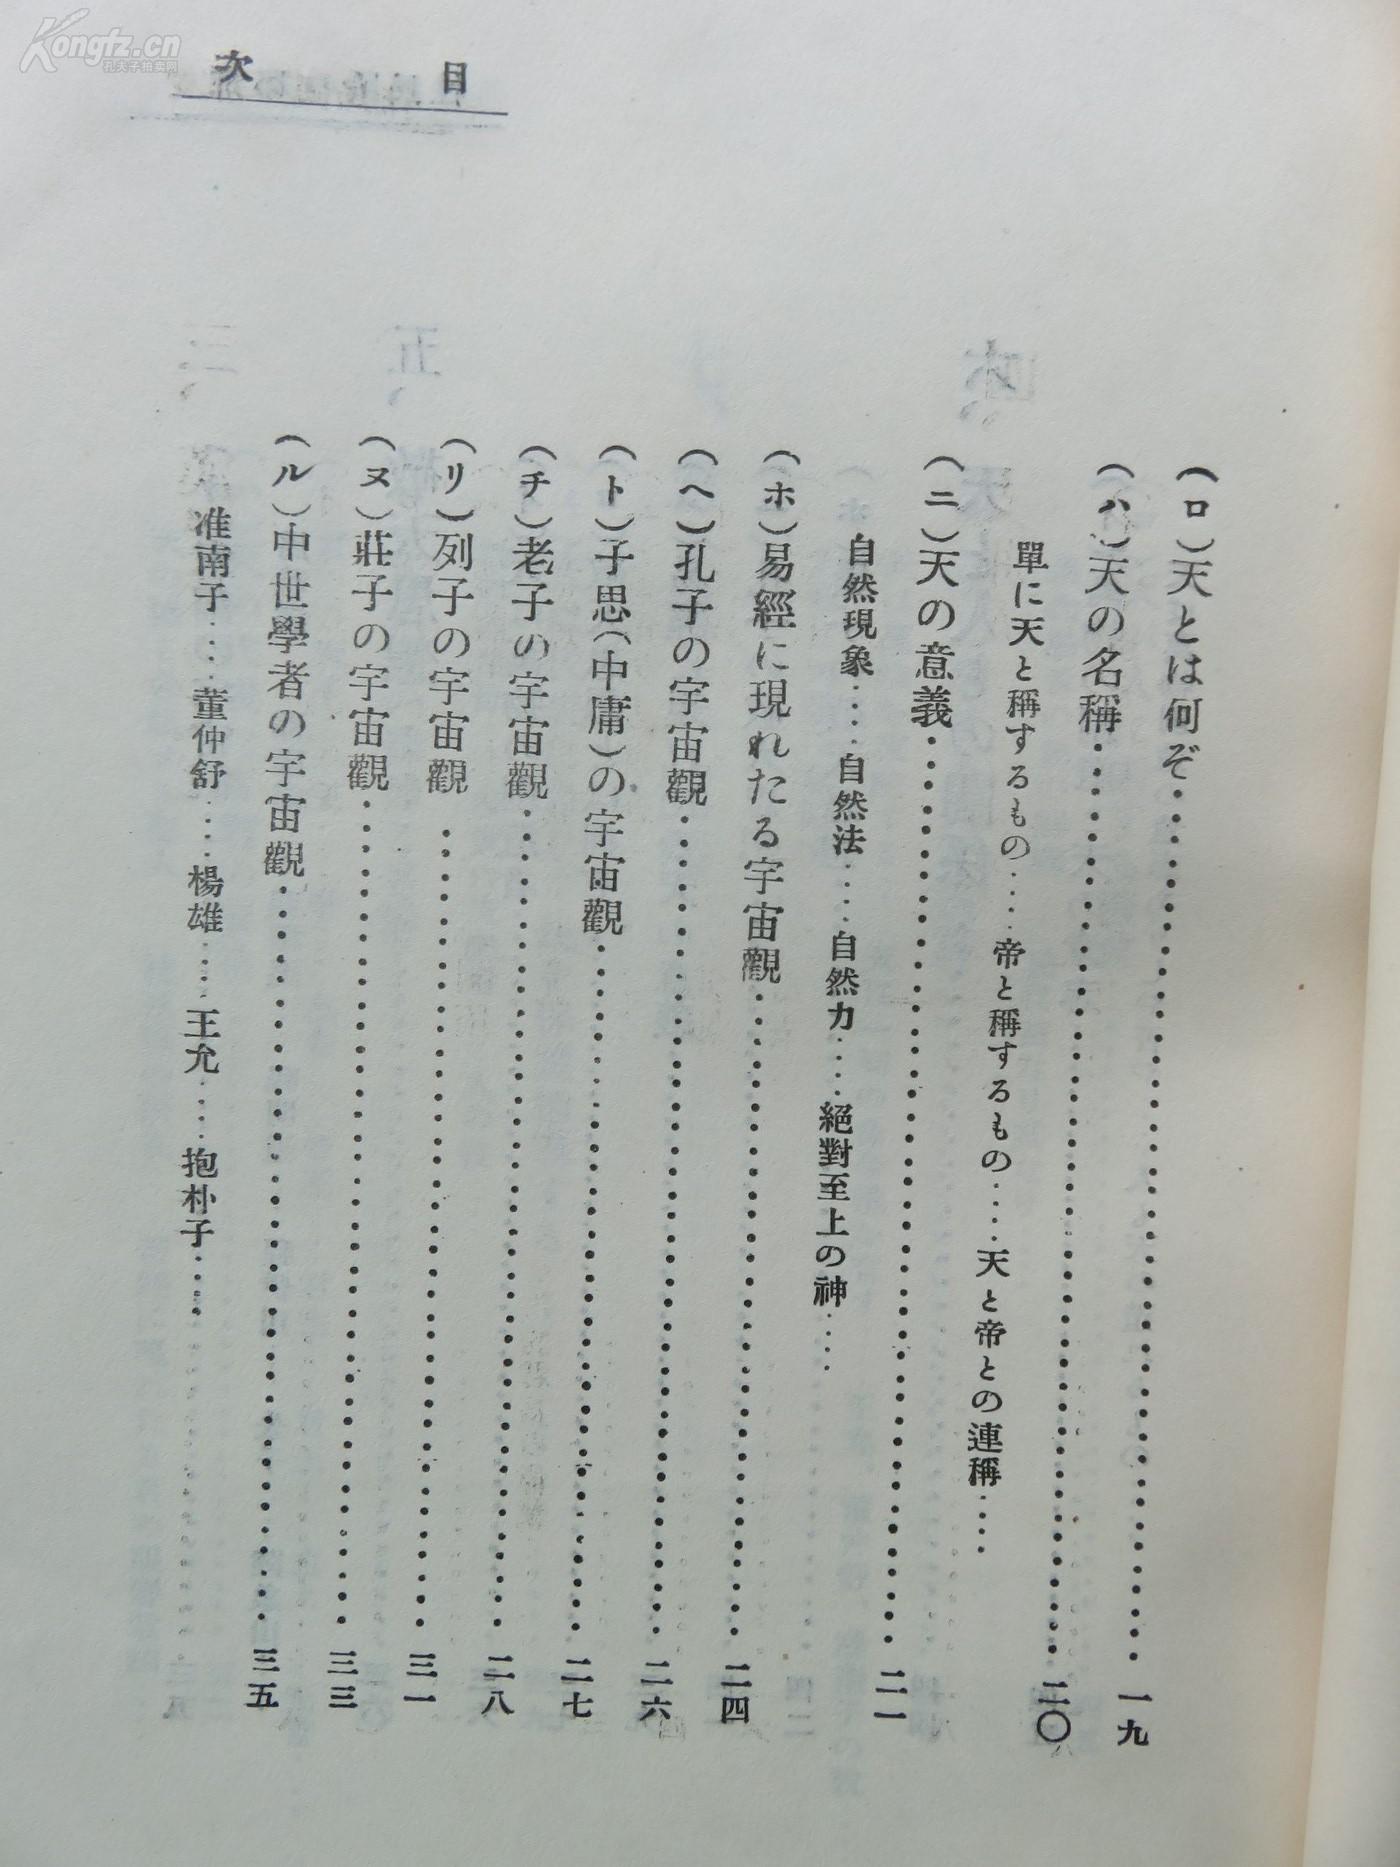 Kongfz.cn
孔夫子拍卖网
目次
(ロ)天とは何ぞ………一九
(ハ)天の名稱………二〇
單に天と稱するもの……帝と稱するもの……天と帝との連稱……
(ニ)天の意義………二一
自然現象……自然法……自然力……絕對至上の神……
(ホ)易經に現れたる宇宙觀………二四
(ヘ)孔子の宇宙觀………二六
(ト)子思(中庸)の宇宙觀………二七
(チ)老子の宇宙觀………二八
(リ)列子の宇宙觀………三一
(ヌ)莊子の宇宙觀………三三
(ル)中世學者の宇宙觀………三五
准南子……董仲舒……楊雄……王允……抱朴子……